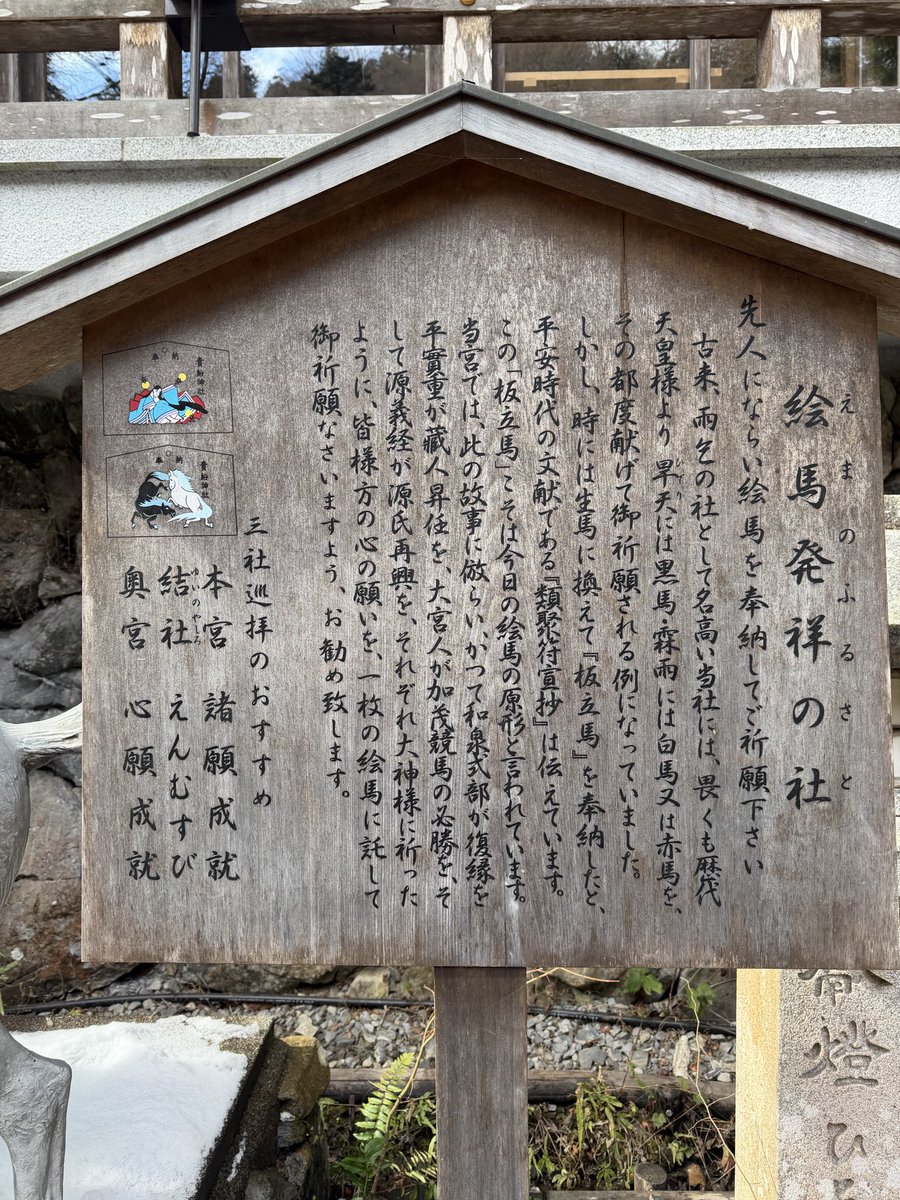 絵馬発祥の社
えまのふるさと
先人にならい絵馬を奉納してご祈願下さい
古来、雨乞の社として名高い当社には、畏くも歴代
天皇様より旱天には黒馬・霖雨には白馬又は赤馬を、
ひでり
その都度献げて御祈願される例になっていました。
しかし、時には生馬に換えて『板立馬』を奉納したと、
平安時代の文献である『類聚符宣抄』は伝えています。
この「板立馬」こそは今日の絵馬の原形と言われています。
当宮では、此の故事に倣らい、かつて和泉式部が復縁を
平實重が蔵人昇任を、大宮人が加茂競馬の必勝を、そ
して源義経が源氏再興を、それぞれ大神様に祈った
ように、皆様方の心の願いを、一枚の絵馬に託して
御祈願なさいますよう、お勧め致します。
三社巡拝のおすすめ
本宮 諸願成就
結社 えんむすび
ゆいのやしろ
奥宮 心願成就
奉納
貴船神社
奉納
貴船神社
燈ひ